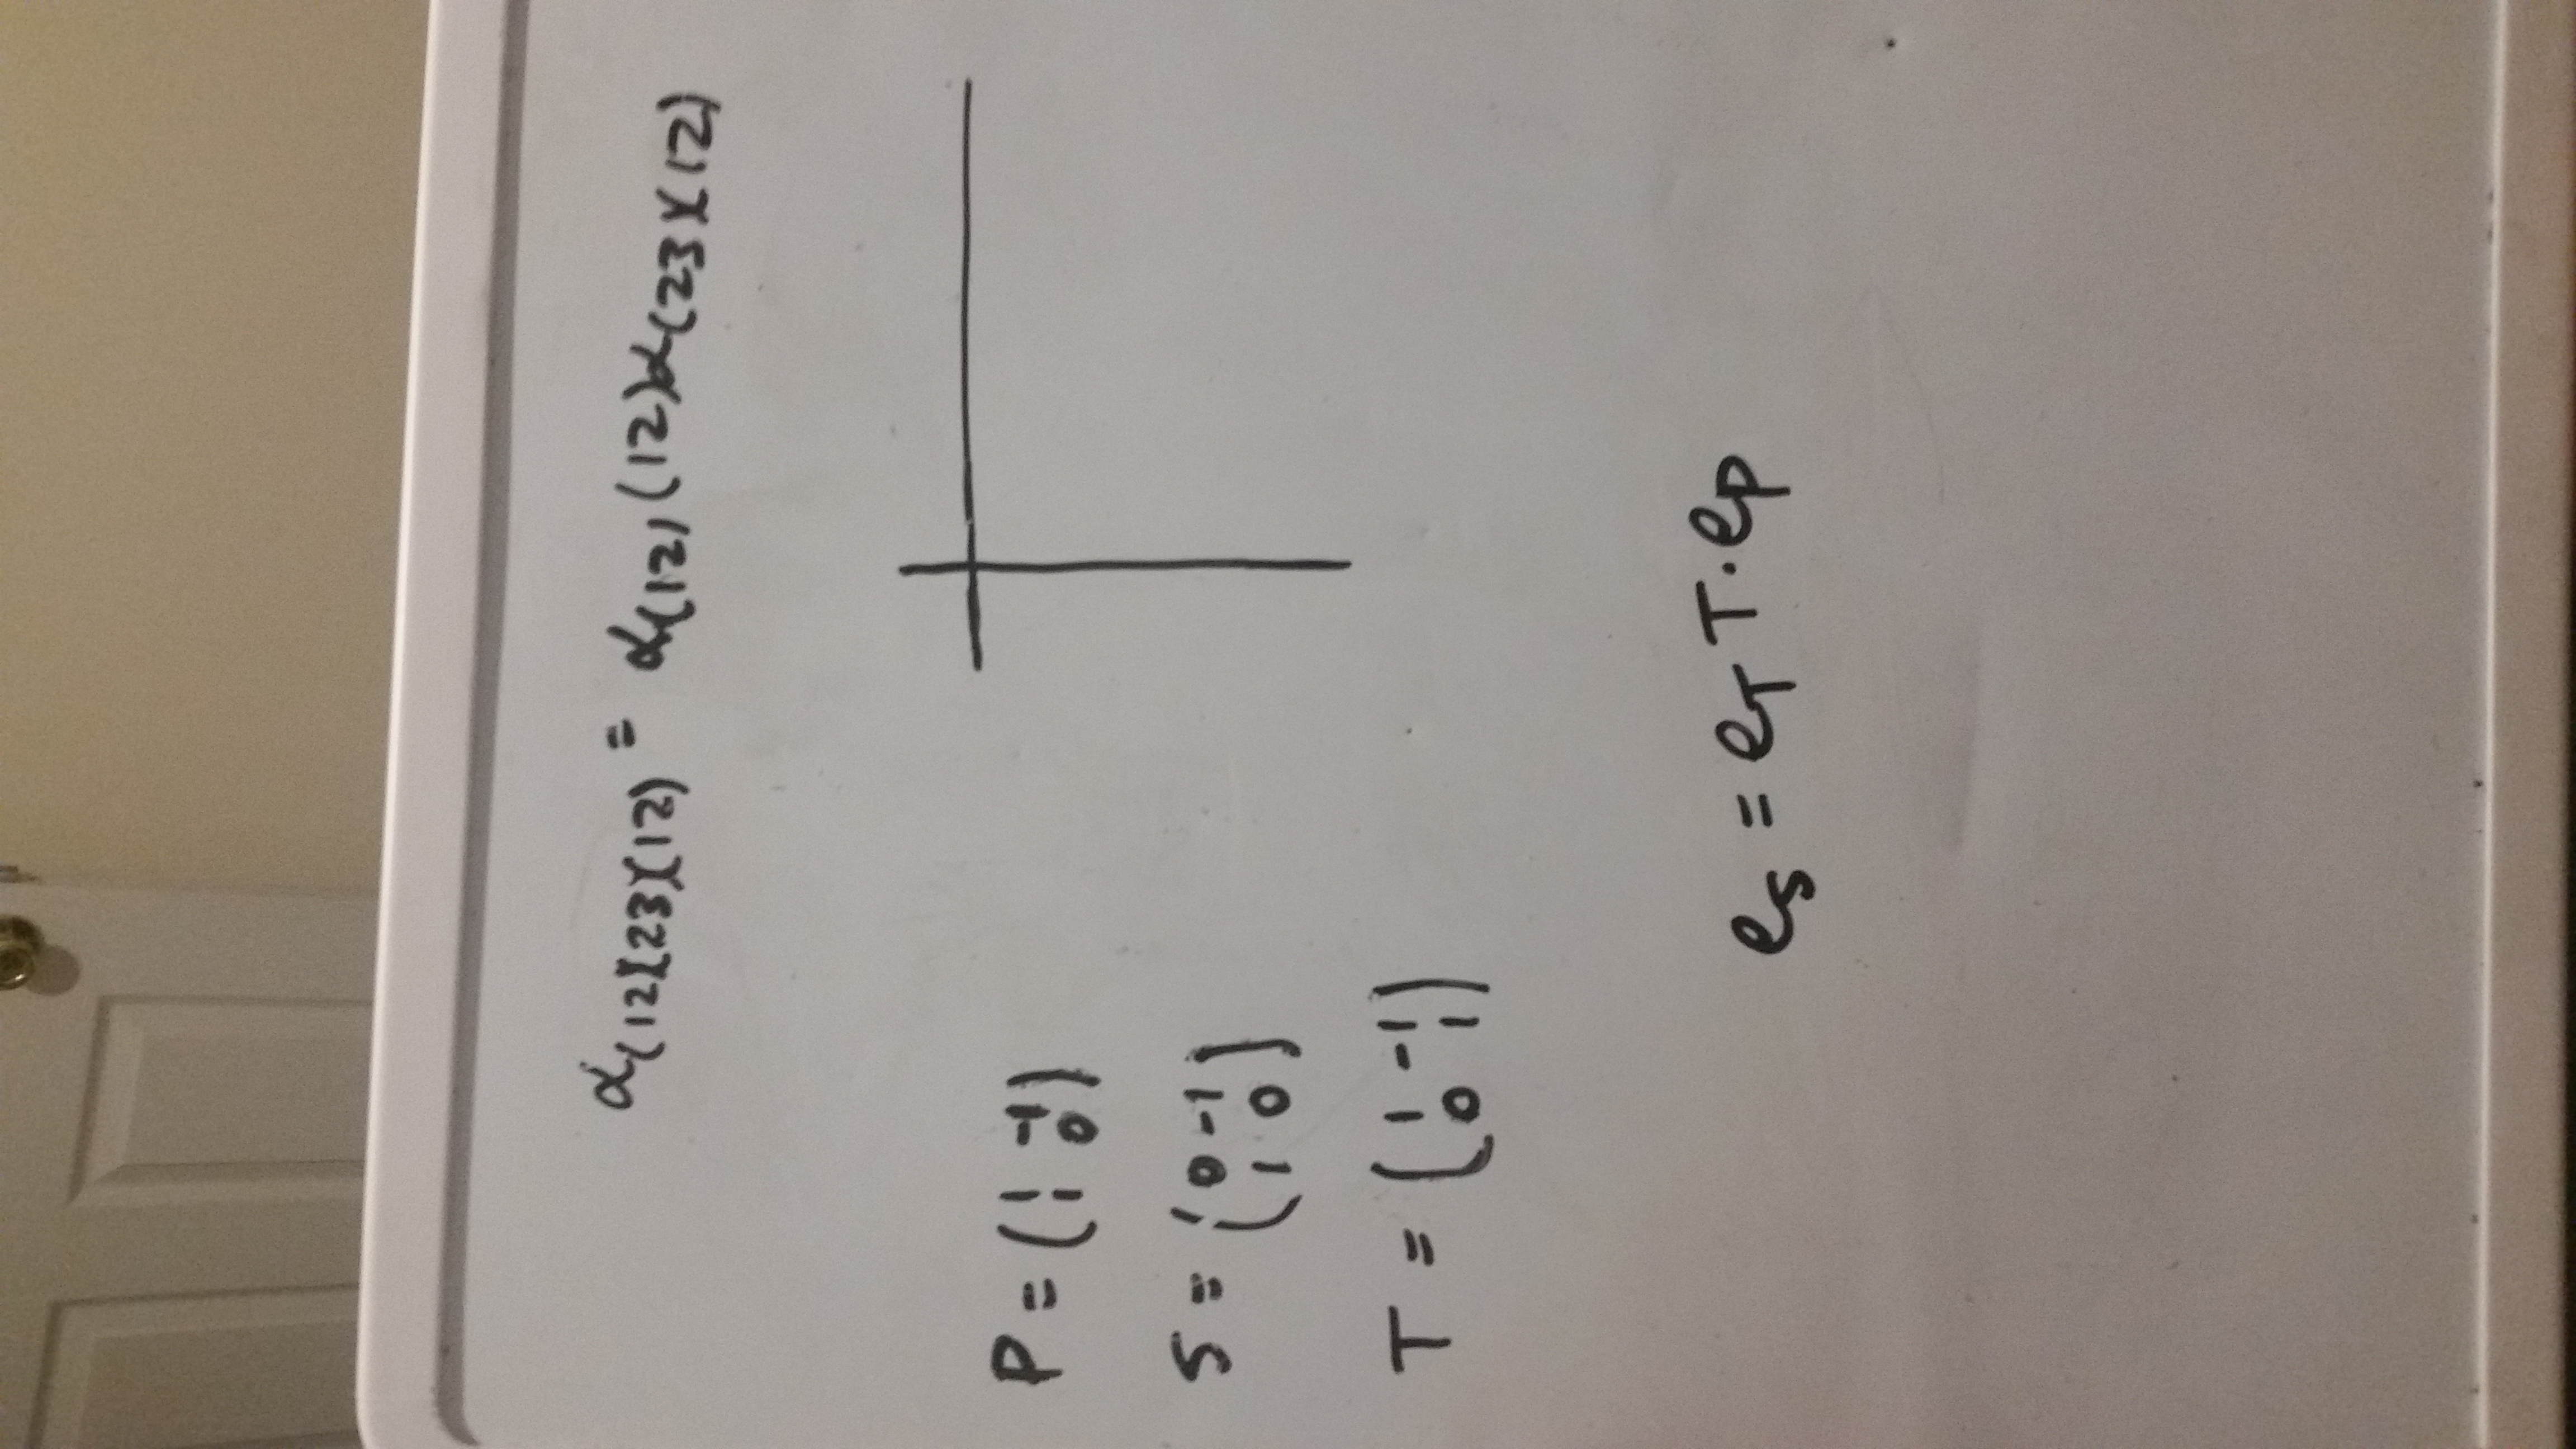 α₍₁₂₎₍₂₃₎₍₁₂₎ = α₍₁₂₎(12)α₍₂₃₎₍₁₂₎
P = (1 -1
1 0)
S = (0 -1
1 0)
T = (1 -1
0 1)
e_S = e_T T · e_P